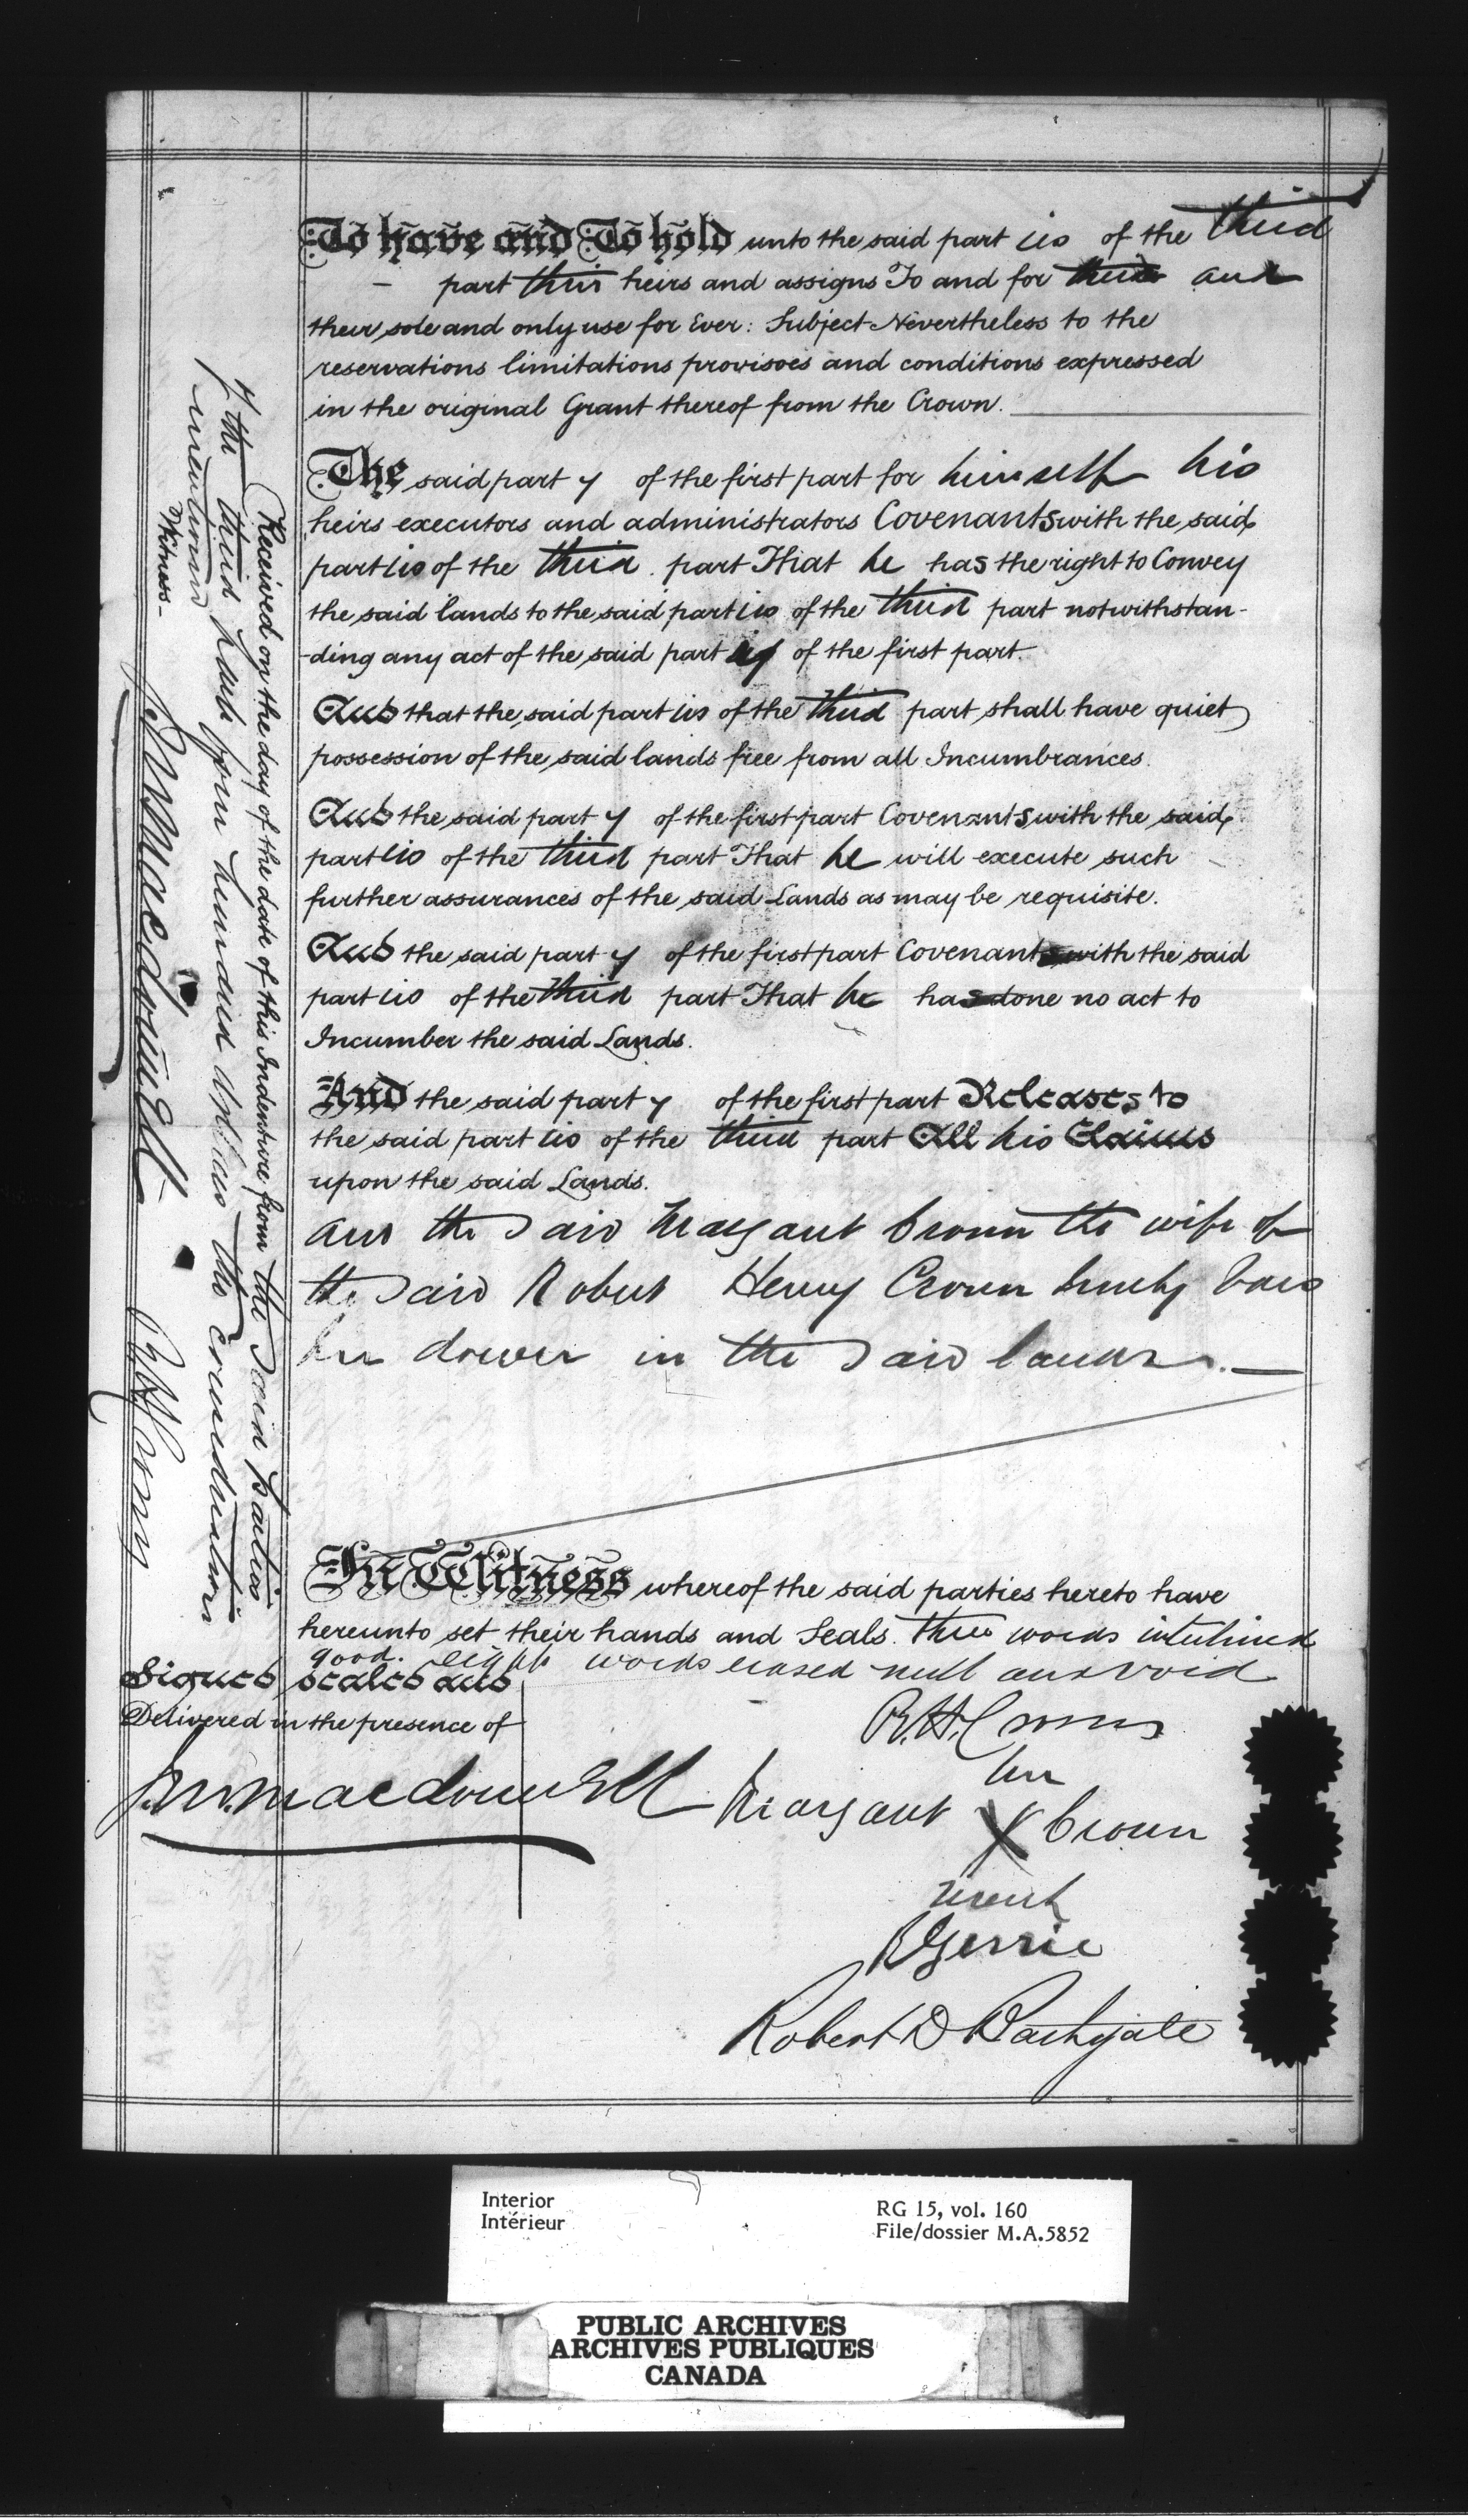 To have and To hold unto the said part ies of the third
part their heirs and assigns To and for them and
their sole and only use for Ever: Subject Nevertheless to the
reservations limitations provisoes and conditions expressed
in the original Grant thereof from the Crown.
The said part y of the first part for himself his
heirs executors and administrators Covenants with the said
part ies of the third part That he has the right to Convey
the said lands to the said part ies of the third part notwithstan-
-ding any act of the said part y of the first part.
And that the said part ies of the third part shall have quiet
possession of the said lands free from all Incumbrances.
And the said part y of the first part Covenants with the said
part ies of the third part That he will execute such
further assurances of the said Lands as may be requisite.
And the said part y of the first part Covenants with the said
part ies of the third part That he has done no act to
Incumber the said Lands.
And the said part y of the first part Releases to
the said part ies of the third part All his Claims
upon the said Lands.
and the said Margaret Cronn the wife of
the said Robert Henry Cronn hereby bars
her dower in the said lands.
In Witness whereof the said parties hereto have
hereunto set their hands and Seals. three words interlined
good. eight words erased null and void
Signed sealed and
Delivered in the presence of
R.H. Cronn
her
J.M. Macdonnell Margaret X Cronn
mark
R Gerrie
Robert D Bathgate
Received on the day of the date of this Indenture from the said parties
of the third part four hundred dollars the consideration
mentioned
Witness-
J.M. Macdonnell R H Cronn
Interior
Intérieur
RG 15, vol. 160
File/dossier M.A.5852
PUBLIC ARCHIVES
ARCHIVES PUBLIQUES
CANADA